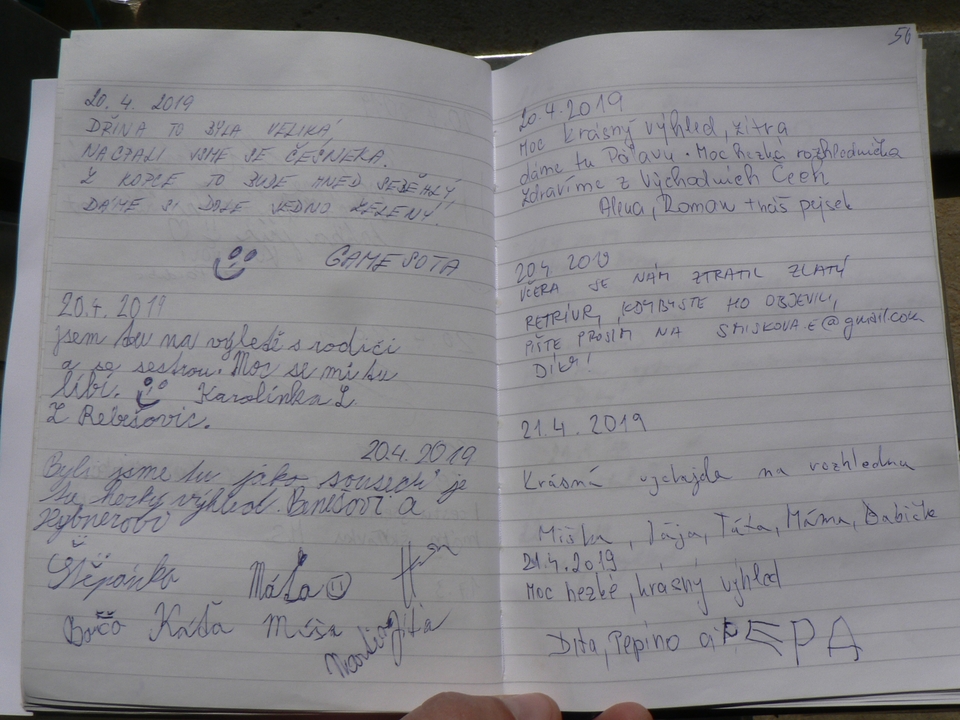 20. 4. 2019
DŘINA TO BYLA VELIKÁ,
NACPALI JSME SE ČESNEKA.
Z KOPCE TO BUDE HNED SEBĚHLÝ,
DÁME SI DOLE JEDNO ZELENÝ.
GAMESOTA
20.4. 2019
jsem tu na výletě s rodiči
a se sestrou. Moc se mi tu
líbí. Karolínka Z.
Z Rebešovic.
20.4.2019
Byli jsme tu jako sousedi je
tu hezký výhled. Benešovi a
Štěpánka Máťa
Káťa Míša Jita
56
20.4.2019
Moc krásný výhled, zítra
dáme tu Pálavu. Moc hezká rozhlednička
Zdravíme z Východních Čech
Alena, Roman + náš pejsek
20.4 2019
VČERA SE NÁM ZTRATIL ZLATÝ
RETRÍVR, KDYBYSTE HO OBJEVILI,
PIŠTE PROSÍM NA SMISKOVA.E@gmail.com
DÍKY!
21.4. 2019
Krásná vycházka na rozhlednu
Miška, Jája, Táta, Máma, Babička
21.4.2019
Moc hezké, krásný výhled
Dita, Pepino a PEPA